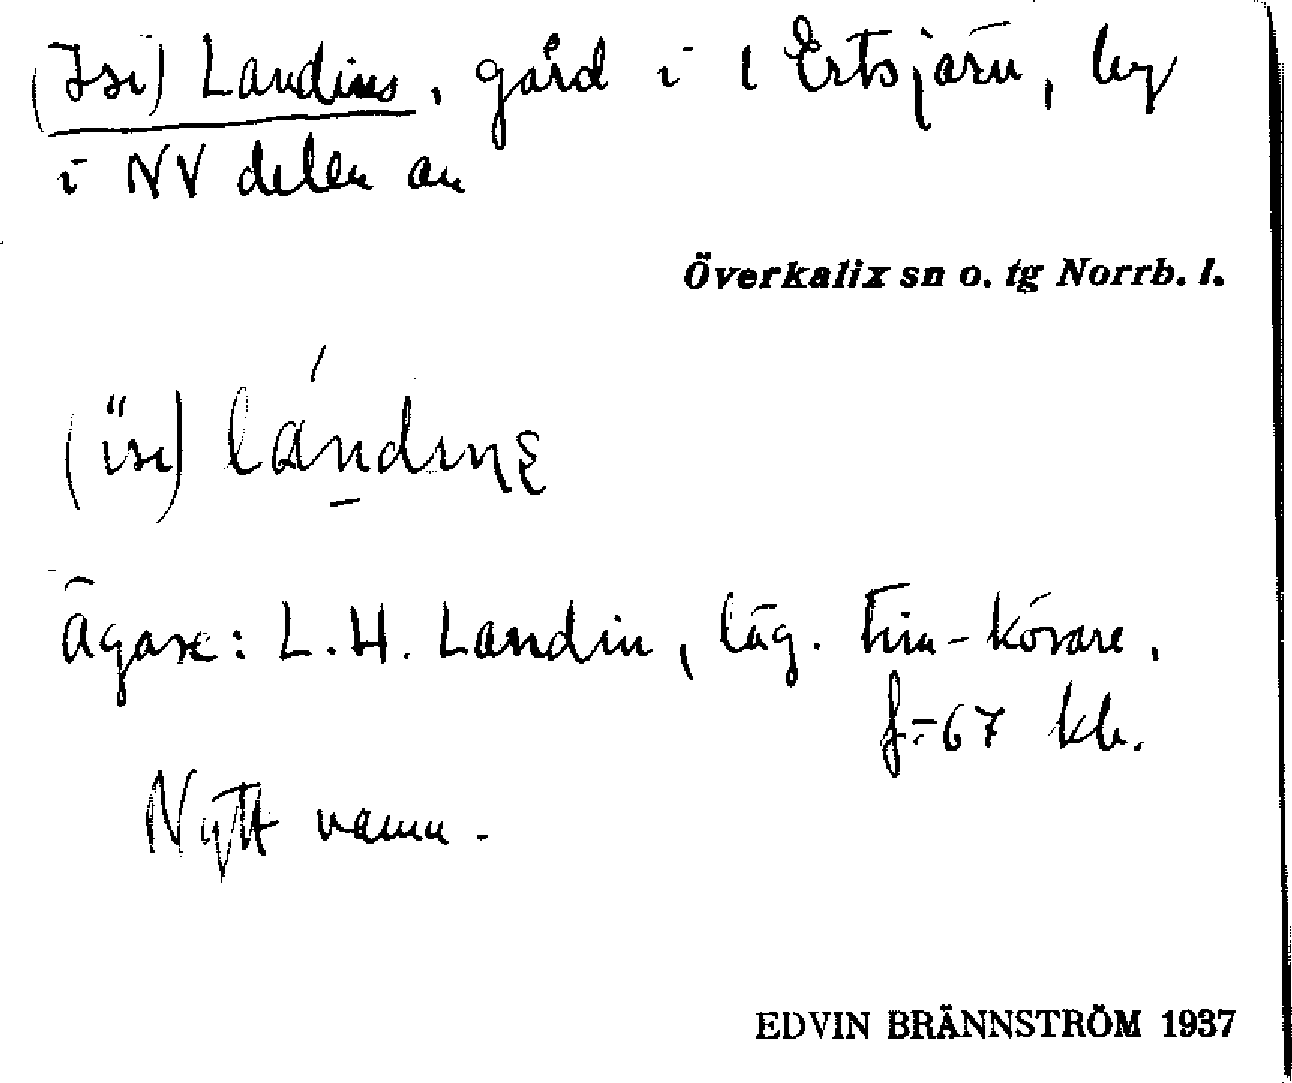 (Isi) Landins, gård i l Ertsjärn, by
i NV delen av
Överkalix sn o. tg Norrb. l.
(ïsi) lándins
ägare: L.H. Landin, läg. tim-körare,
f. -67 kb.
Nytt namn.
EDVIN BRÄNNSTRÖM 1937